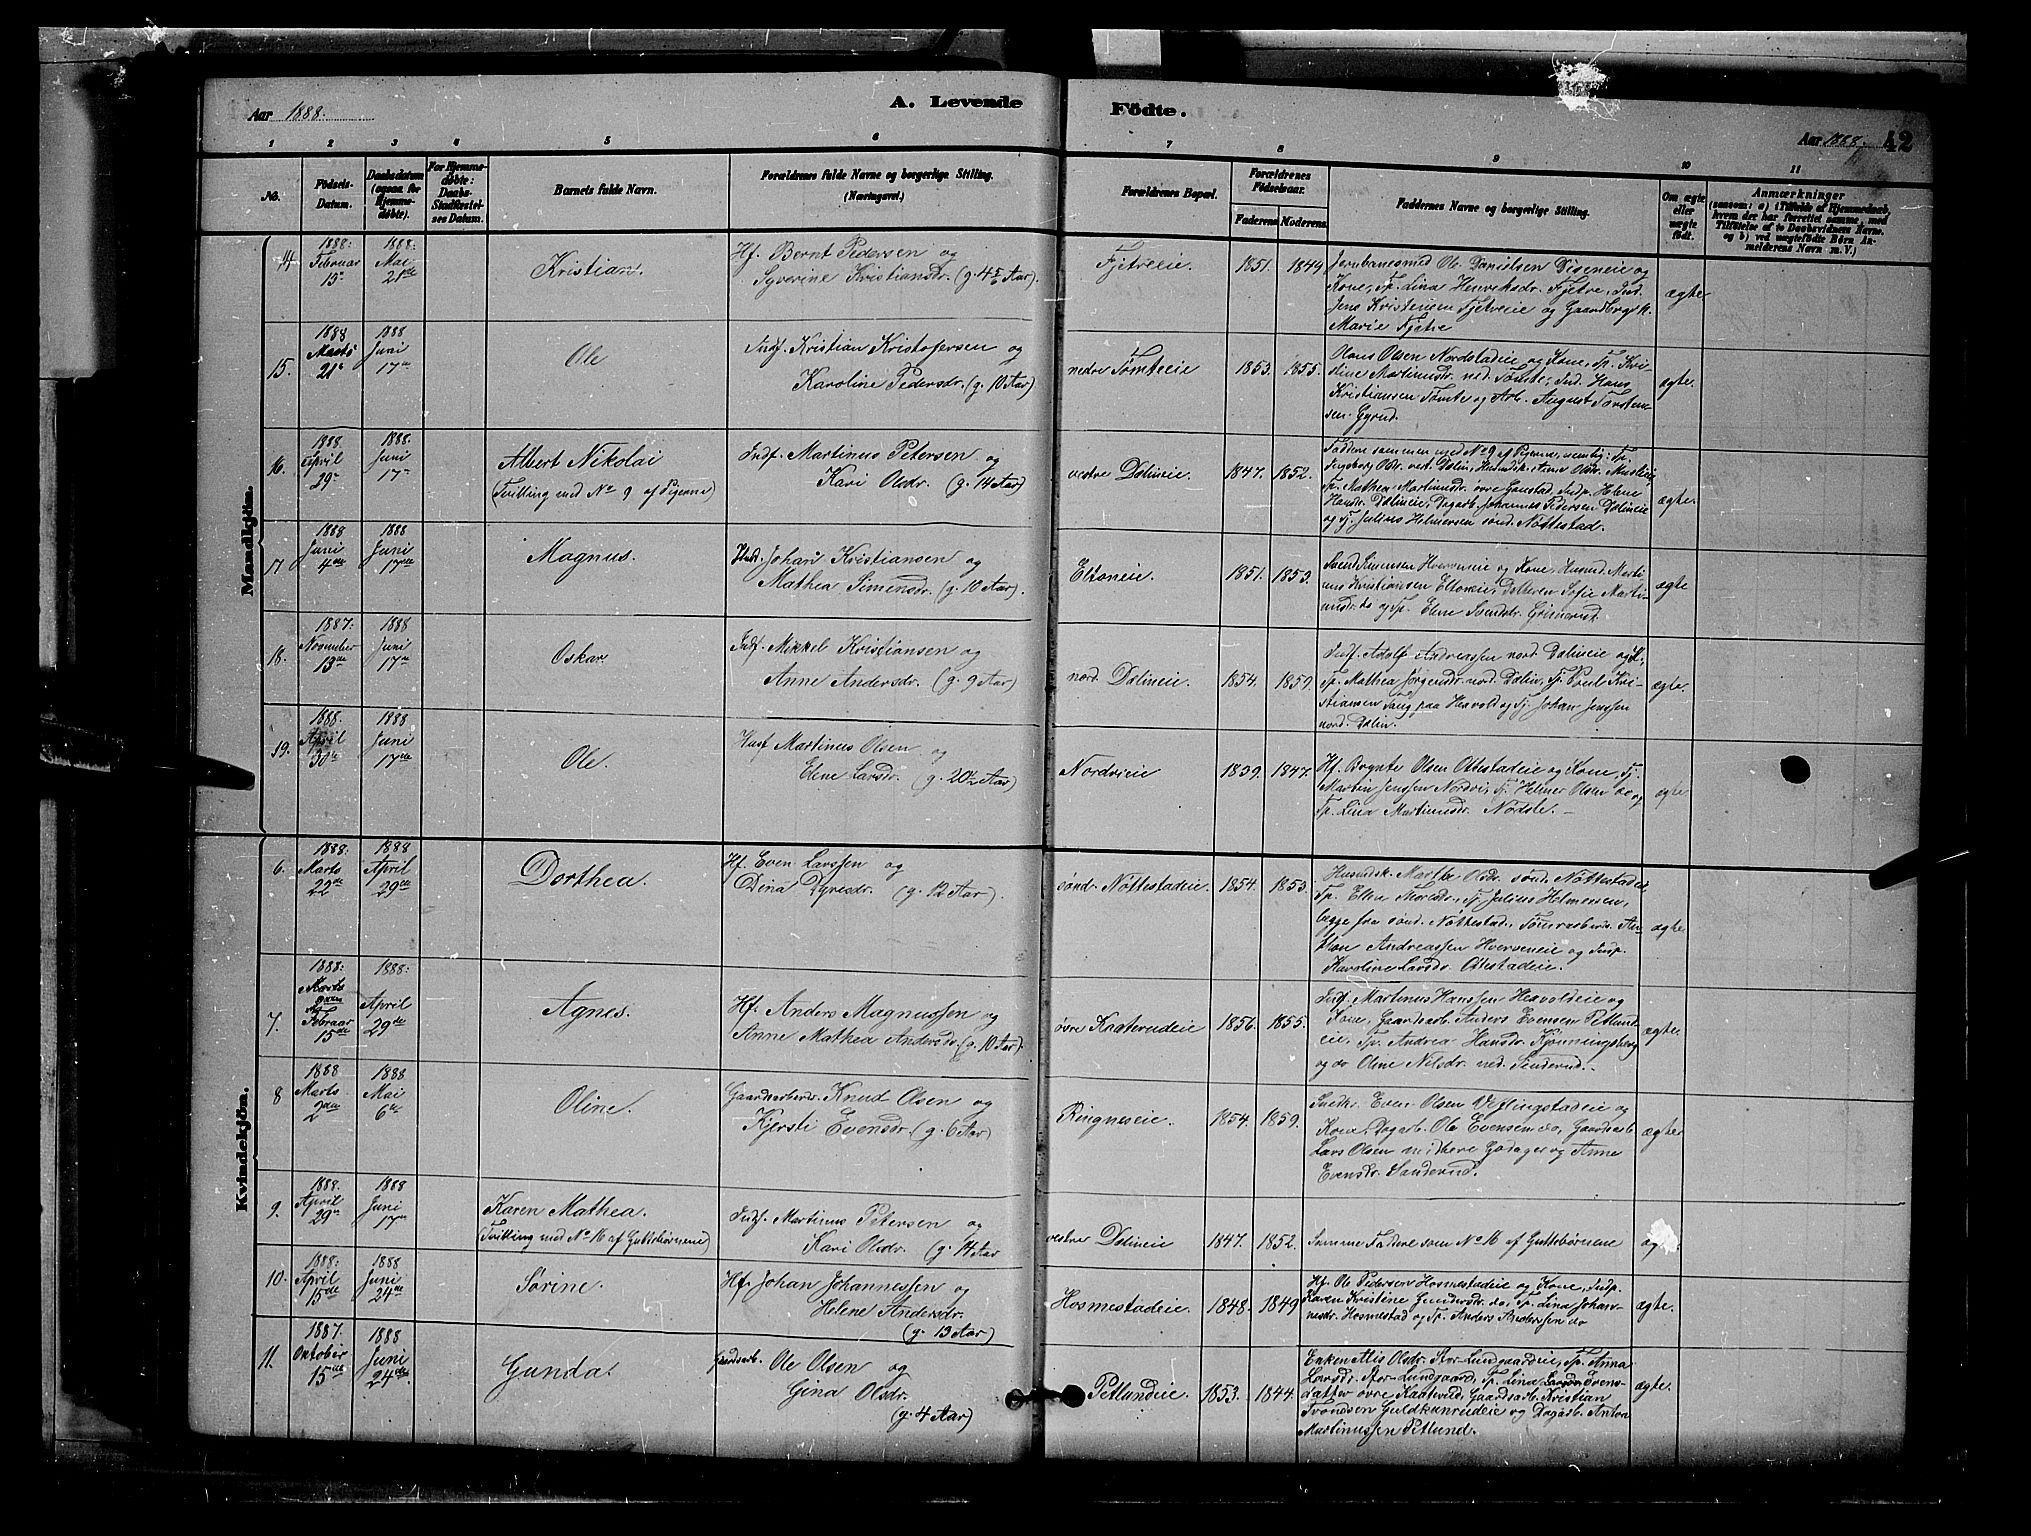 Aar 1888.
A. Levende
Födte.
Aar 1888.
42
1 2 3 4 5 6 7 8 9 10 11
No.
Födsels-
Datum.
Daabsdatum
(ogsaa for
Hjemme-
döbte).
For Hjemme-
döbte:
Daabs-
Stadfæstel-
ses Datum.
Barnets fulde Navn.
Forældrenes fulde Navne og borgerlige Stilling.
(Næringsvei.)
Forældrenes Bopæl.
Forældrenes
Födselsaar.
Faderens
Moderens
Faddernes Navne og borgerlige Stilling.
Om ægte
eller
uægte
födt.
Anmærkninger
(saasom: a) i Tilfælde af Hjemmedaab,
hvem der har forrettet samme, med
Tilföielse af to Daabsvidners Navne.
og b) ved uægtefödte Börn An-
melderens Navn m.V.)
Mandkjön.
14
1888
Februar
15
1888.
Mai
21de
Kristian.
Hf. Bernt Pedersen og
Syverine Kristiansdr. (g. 4 Aar).
Fjetreeie.
1851. 1844
Jernbanesmed Ole Danielsen Diseneie og
Kone, Tp. Lina Henriksdr. Fjetre, Ind.
Jens Kristensen Fjetreeie og Gaardbrgsk.
Marie Fjetre
ægte
15.
1888
Marts
21
1888
Juni
17
Ole
Indf. Kristian Kristofersen og
Karoline Pedersdr. (g. 10 Aar)
nedre Tomteeie
1853. 1855.
Hans Olsen Nordstadeie og Kone, Tp. Kri-
stine Martinusdr. ned. Tomte, Ind. Hans
Kristiansen Tomte og Arb. August Torsten-
sen Gyrud.
ægte.
16.
1888
April
29
1888.
Juni
17
Albert Nikolai
(Tvilling med No 9 af Pigerne)
Indf. Martinus Petersen og
Kari Olsdr. (g. 14 Aar)
vestre Dælineie
1847. 1852.
Faddere sammen med No 9 af Pigerne, nemlig: Tp.
Ingeborg Olsdr. vest. Dælin, Husmdsk. Anne Olsdr.
Tp. Mathea Martinusdr. övre Gaustad, Indp. Helene
Hansdr. Dælineie, Dagarb. Johannes Pedersen Dælineie
og Tj. Julius Helmersen sönd. Nöttestad.
ægte.
17
1888
Juni
4de
1888
Juni
17de
Magnus.
Johan Kristiansen og
Mathea Simensdr. (g. 10 Aar).
Eltoneie.
1851. 1853.
Svend Simensen Hverveneie og Kone, Husmd. Marti-
nus Kristiansen Eltoneie, Datteren Sofie Marti-
nusdr. do og Tp. Elene Svendsdr.
ægte
18.
1887.
November
13de
1888
Juni
17de
Oskar.
Indf. Mikkel Kristiansen og
Anne Andersdr. (g. 9 Aar)
nord. Dælineie.
1854. 1859.
Indf. Adolf Andreassen nord. Dælineie og K.
Tp. Mathea Jörgensdr. nord. Dælin, Tj. Poul Kri-
stiansen paa Hexvold og Tj. Johan Jenssen
nord. Dælin.
ægte.
19.
1888.
April
30te
1888
Juni
17de
Ole.
Husf Martinus Olsen og
Elene Larsdr. (g. 20½ Aar)
Nordvieie
1839. 1847.
Hf. Brynte Olsen Ottestadeie og Kone, Tj.
Martin Jenssen Nordvi, Tj. Helmer Olsen do og
Tp. Lina Martinusdr. Nödsle. –
ægte
Kvindekjön.
6.
1888.
Marts
22de
1888
April
29de
Dorthea.
Hf. Even Larssen og
Dina Dyresdr. (g. 12 Aar).
sönd. Nöttestadeie.
1854. 1853.
Husmdsk. Marthe Olsdr. sönd. Nöttestadeie,
Tp. Ellen Thoresdr., Tj. Julius Helmersen,
begge fra sönd. Nöttestad, Tömresberds. An-
ton Andreassen Hverveneie og Indp.
Karoline Larsdr. Ottestadeie.
ægte
7.
1888.
Februar
15de
1888.
April
29de
Agnes.
Hf. Anders Magnussen og
Anne Mathea Andersdr. (g. 10 Aar).
övre Knaterudeie
1856. 1855.
Indf. Martinus Hanssen Hexvoldeie og
Kone, Gaardsarb. Anders Evensen Petlund-
eie, Tp. Andrea Hansdr. Kjonningsberg
og do Oline Nilsdr. ned. Sinderud. –
ægte
8
1888
Marts
2den
1888
Mai
6te
Oline.
Gaardsarbdr. Knud Olsen og
Kjersti Evensdr. (g. 6 Aar)
Ringneseie.
1854. 1859.
Snedkr. Even Olsen Veflingstadeie og
Kone, Dagarb. Ole Evensen do, Gaardsarb
Lars Olsen nedre Godager og Anne
Evensdr. Sanderud.
ægte
9.
1888.
April
29de
1888
Juni
17de
Karen Mathea.
Tvilling med No 16 af Guttebörnene)
Indf. Martinus Petersen og
Kari Olsdr. (g. 14 Aar
vestre Dælineie
1847. 1852.
Samme Faddere som No 16 af Guttebörnene
10.
1888.
April
15de
1888
Juni
24de
Sörine.
Hf. Johan Johannessen og
Helene Andersdr.
(g. 13 Aar)
Hosmestadeie.
1848. 1849
Hf. Ole Pedersen Hosmestadeie og Kone, Indp.
Karen Kristine Gundersdr. do, Tp. Lina Johan-
nesdr. Hosmestad og Tp. Anders Anderssen do
ægte.
11.
1887.
Oktober
15de
1888
Juni
24de
Gunda.
Gaardsarb. Ole Olsen og
Gina Olsdr.
(g. 4 Aar)
Petlundeie.
1853. 1844.
Enken Alis Olsdr. Stor-Lundgaardeie, Tp. Anna
Larsdr. Stor-Lundgaard, Tp. Lina Evens-
datter övre Kaatevold, Gaardsarb. Kristian
Trondsen Guldkanrudeie og Dagarb. Anton
Martinussen Petlund.
ægte.